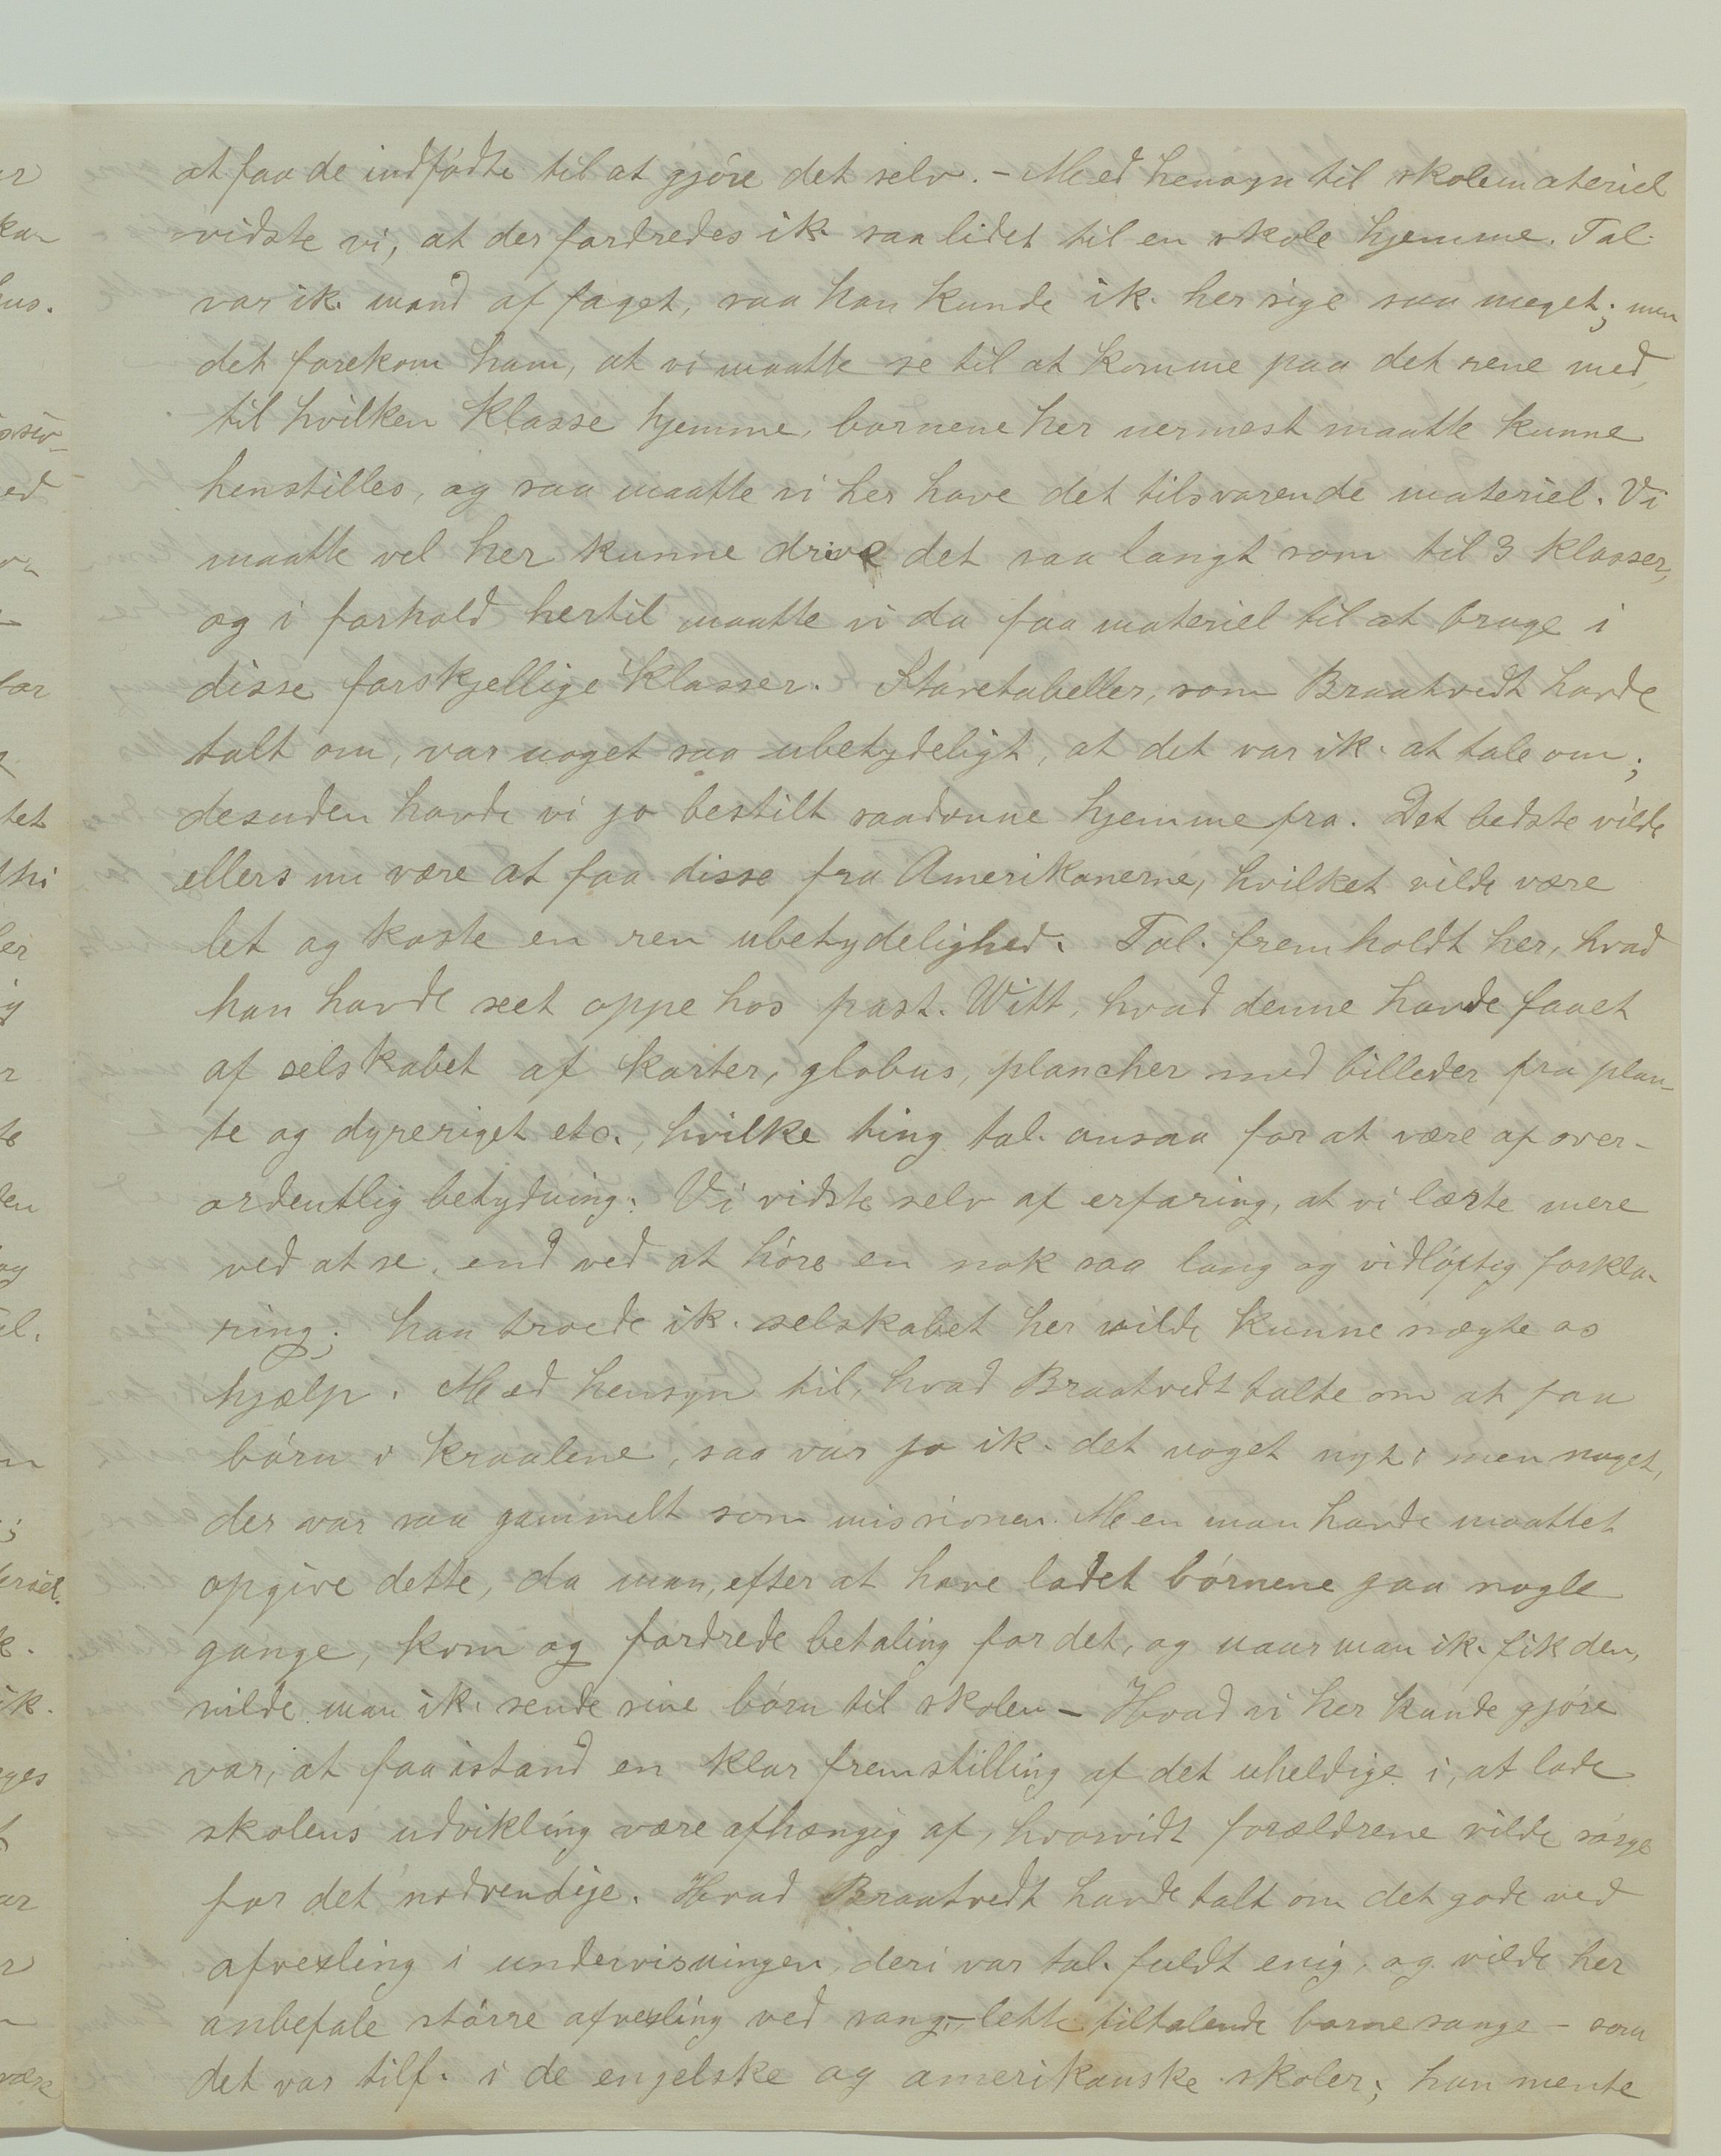 at faa de indfødte til at gjöre det selv. – Med hensyn til skolemateriel
vidste vi, at der fordredes ik. saa lidet til en skole hjemme. Tal.
var ik. mand af faget, saa han kunde ik. her sige saa meget; men
det forekom ham, at vi maatte se til at komme paa det rene med,
til hvilken klasse hjemme, barnene her nermest maatte kunne
henstilles, og saa maatte vi her have det tilsvarende materiel. Vi
maatte vel her kunne drive det saa langt som til 3 klasser,
og i forhold hertil maatte vi da faa materiel til at bruge i
disse forskjellige klasser. Stavetabeller, som Braatvedt havde
talt om, var noget saa ubetydeligt, at det var ik. at tale om;
desuden havde vi jo bestilt saadanne hjemme fra. Det bedste vilde
ellers nu være at faa disse fra Amerikanerne, hvilket vilde være
let og koste en ren ubetydelighed. Tal. fremholdt her, hvad
han havde seet oppe hos past. Witt, hvad denne havde faaet
af selskabet af karter, globus, plancher med billeder fra plan-
te og dyreriget etc., hvilke ting tal. ansaa for at være af over-
ordentlig betydning. Vi vidste selv af erfaring, at vi lærte mere
ved at se, end ved at höre en nok saa lang og vidlöftig forkla-
ring; han troede ik. selskabet her vilde kunne nægte os
hjælp. Med hensyn til, hvad Braatvedt talte om at faa
börn i kraalene, saa var jo ik. det noget nyt; men noget,
der var saa gammelt som missionen. Men man havde maattet
opgive dette, da man, efter at have ladet börnene gaa nogle
gange, kom og fordrede betaling for det, og naar man ik. fik den,
vilde man ik. sende sine börn til skolen – Hvad vi her kunde gjöre
var, at faa istand en klar fremstilling af det uheldige i, at lade
skolens udvikling være afhængig af, hvorvidt forældrene vilde sörge
for det nødvendige. Hvad Braatvedt havde talt om det gode ved
afvexling i undervisningen, deri var tal. fuldt enig, og vilde her
anbefale större afvexling ved sang, – lette tiltalende barnesange – som
det var tilf. i de engelske og amerikanske skoler; han mente